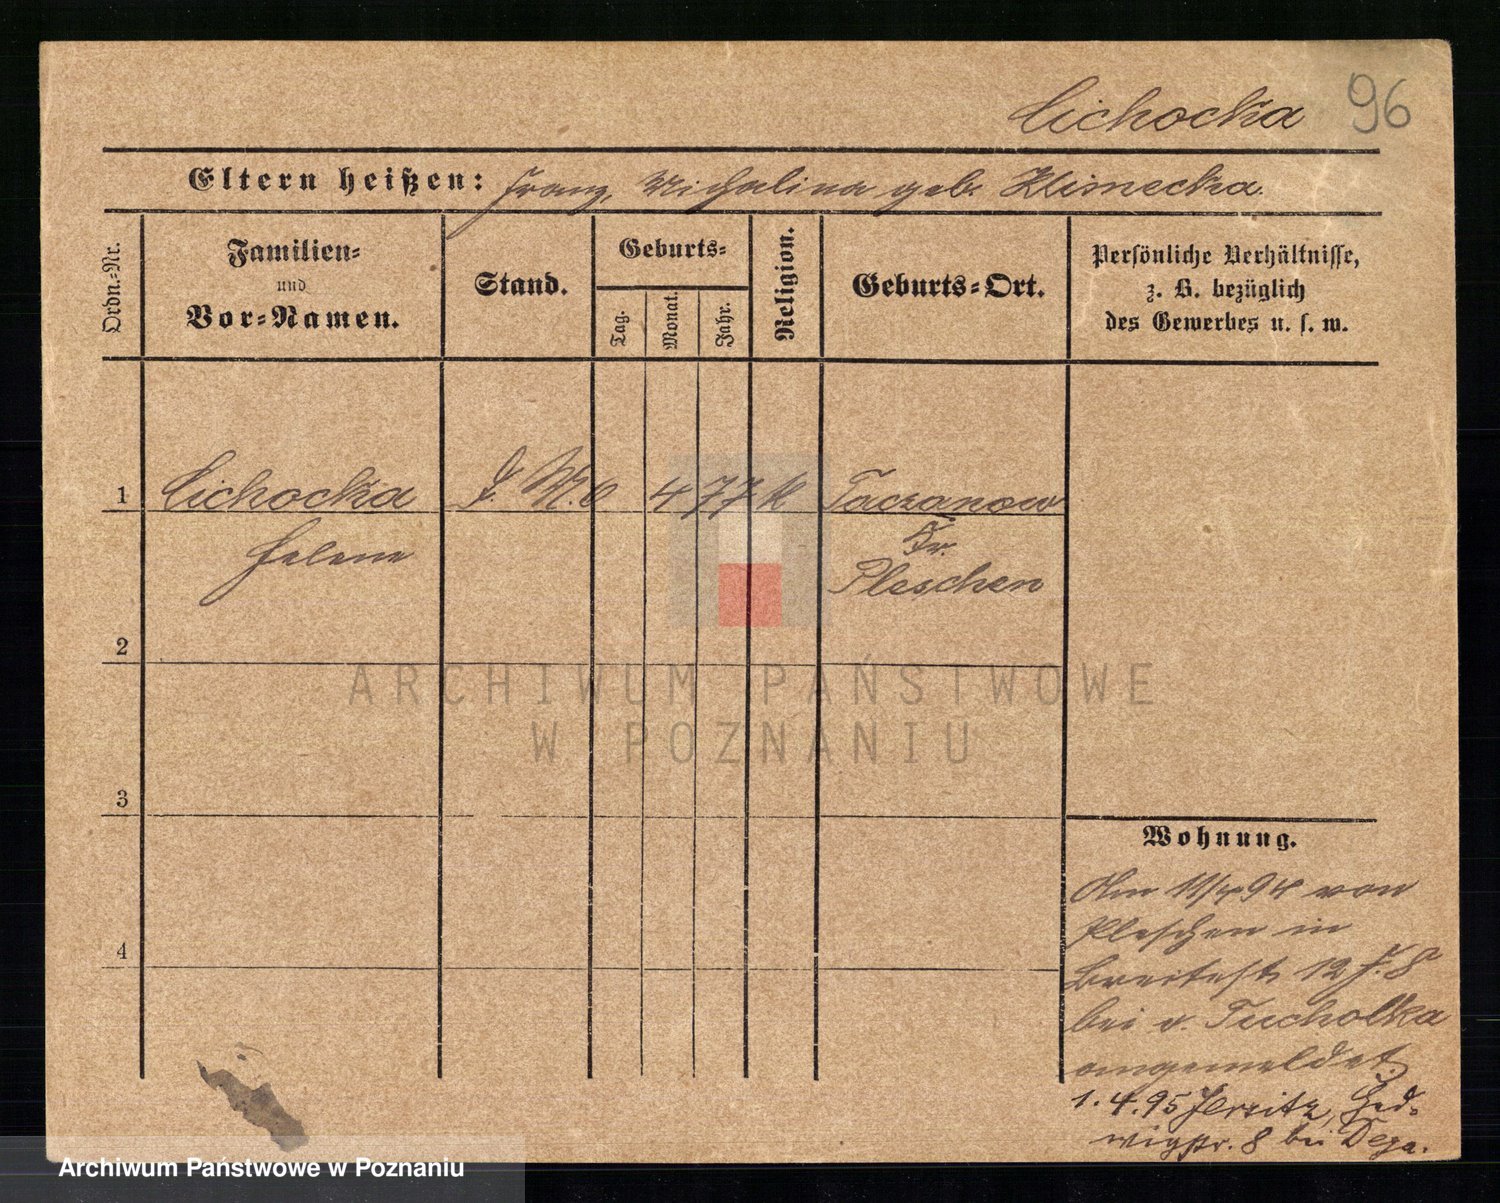 Cichocka 96
Eltern heißen: Franz, Michalina geb. Klimecka.
Ordn.-Nr.
Familien-
und
Vor-Namen.
Stand.
Geburts-
Tag.
Monat.
Jahr.
Religion.
Geburts-Ort.
Persönliche Verhältnisse,
z. B. bezüglich
des Gewerbes u. s. w.
1 Cichocka 6 4 77 k Taczanow
Helene Kr.
Pleschen
2
3
4
Wohnung.
Am 11/4 94 von
Pleschen in
Breitestr 12
bei v. Tucholka
angemeldet.
1. 4. 95 Jersitz, Hed-
wigstr. 8 bei
ARCHIWUM PAŃSTWOWE
W POZNANIU
Archiwum Państwowe w Poznaniu